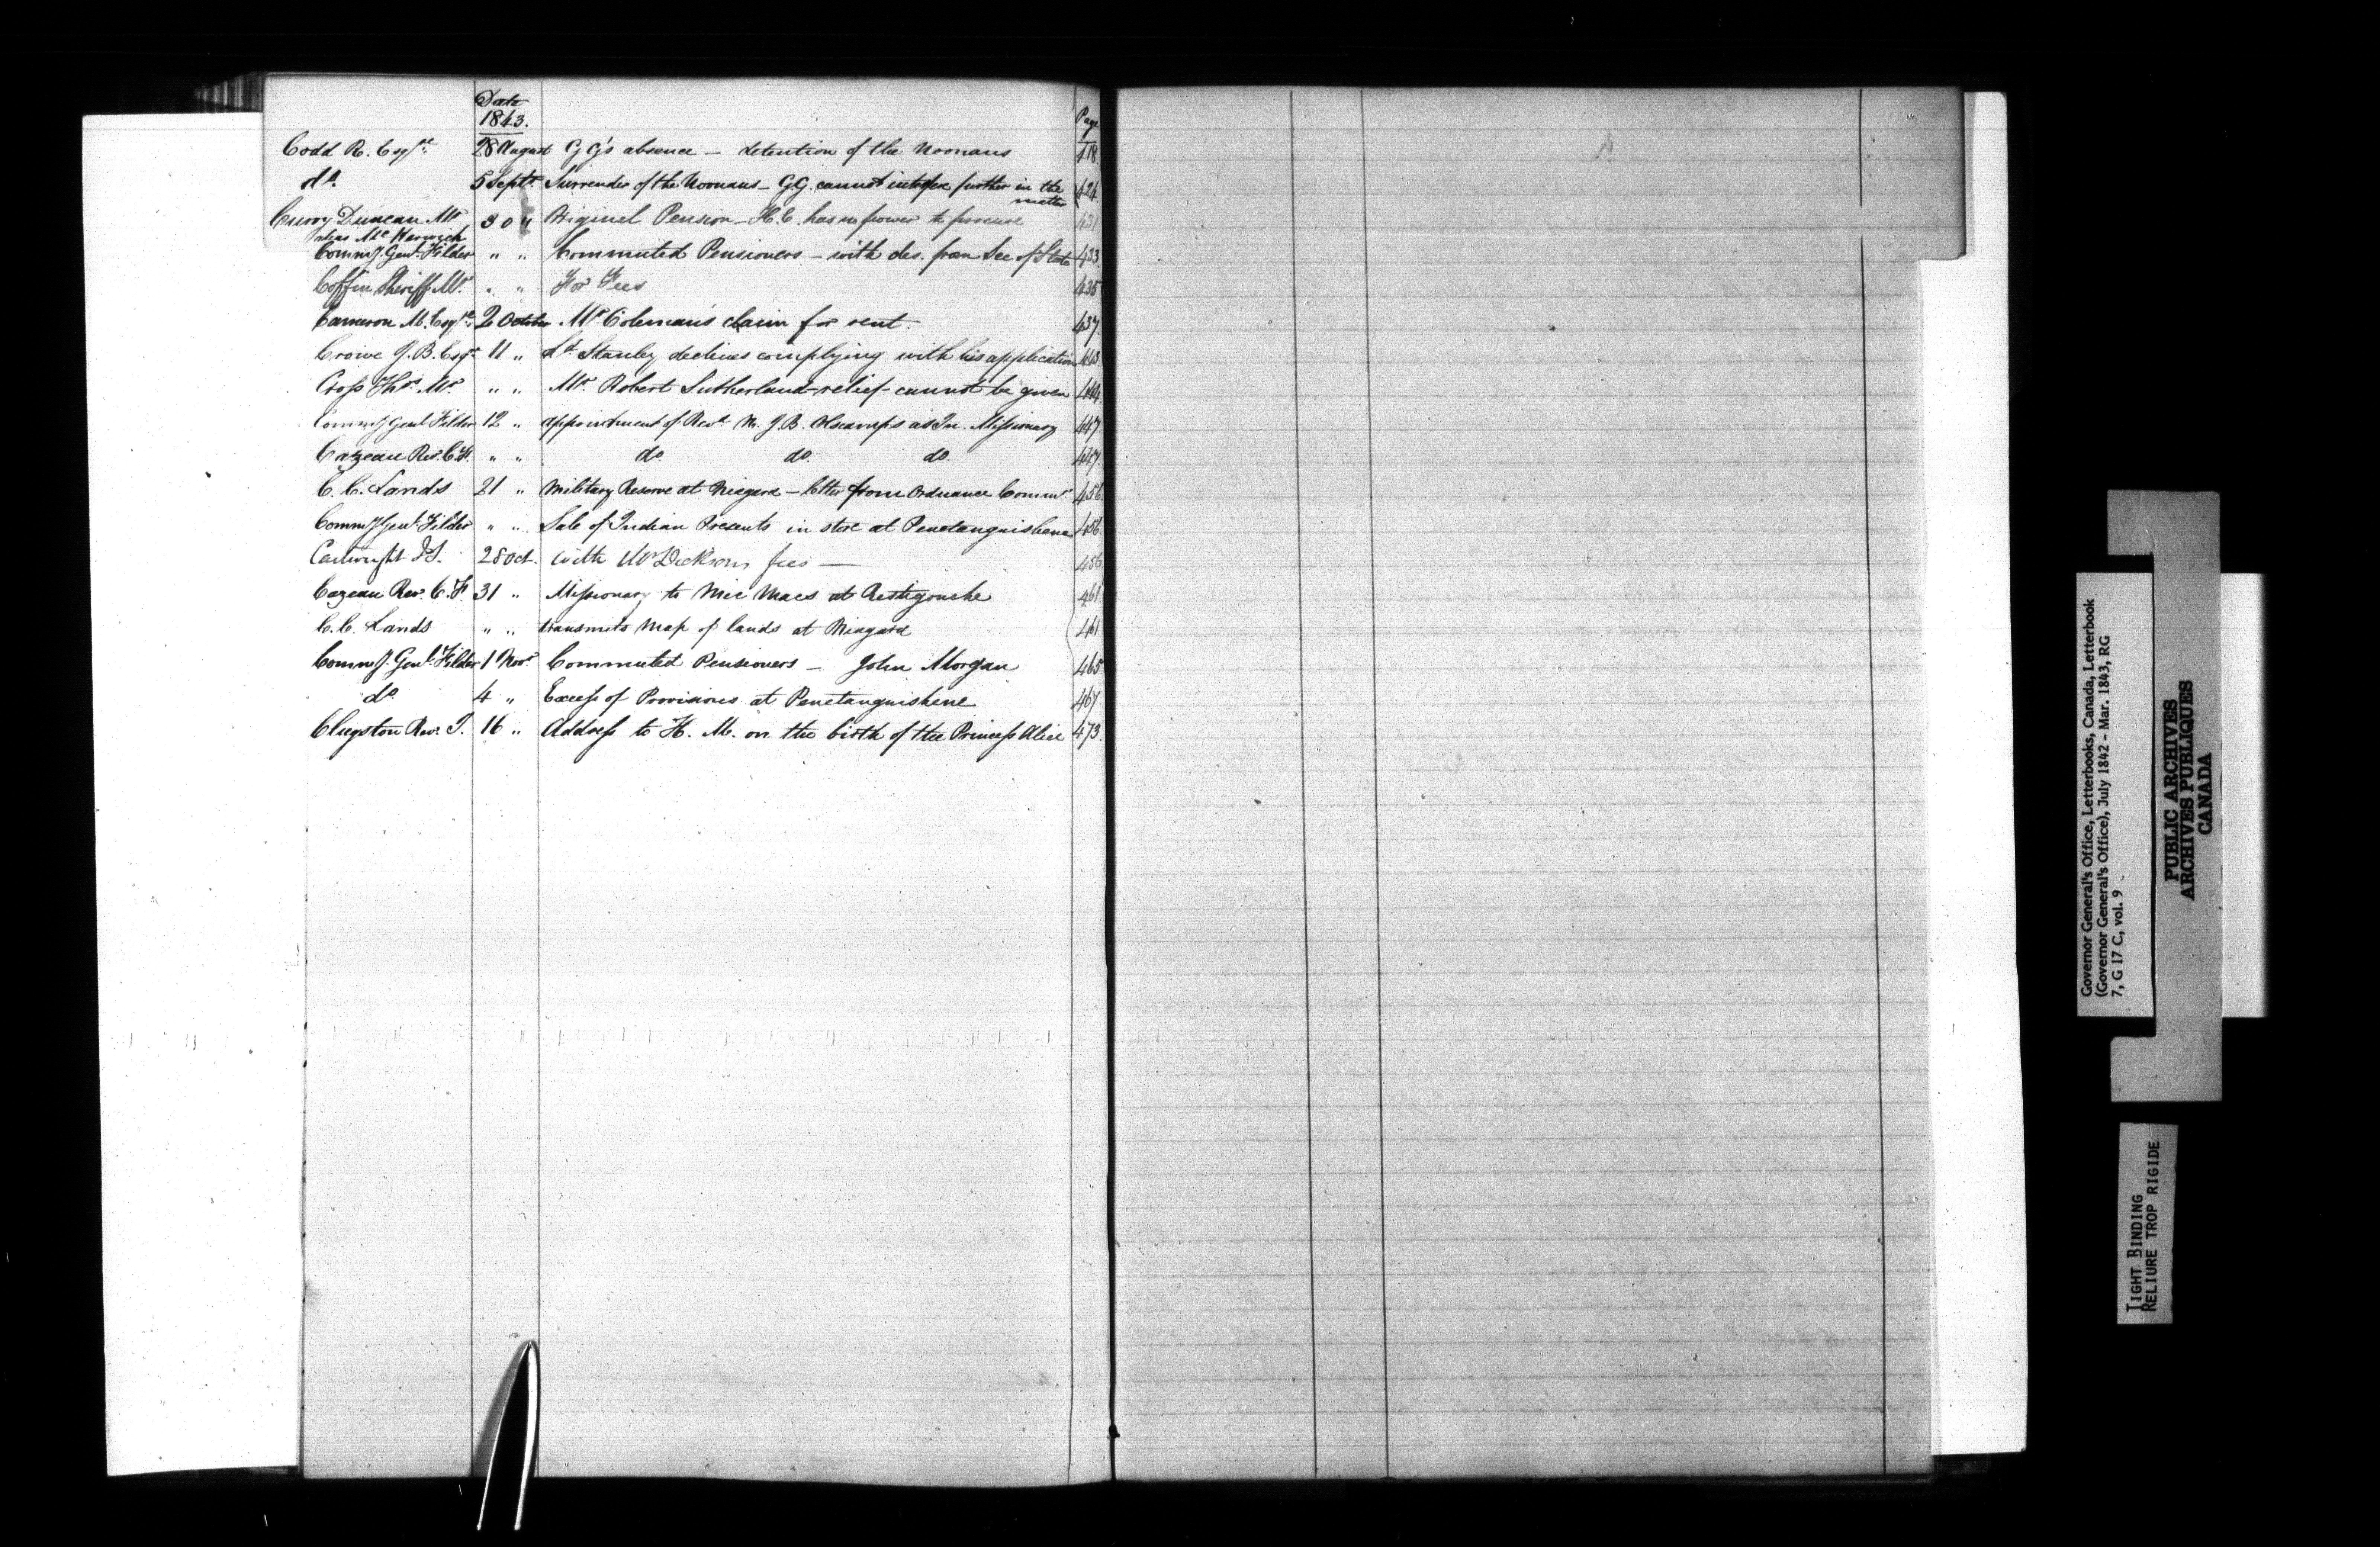 Date
1843.
Page
Codd R. Esqre. 28 August GG's absence — detention of the Noonans 418
do. 5 Septr. Surrender of the Noonans — GG. cannot interfere further in the matter 424
Curry Duncan Mr 30 " Original Pension — H.E. has no power to procure 431
alias Mc
Commy. Genl. Filder " " Commuted Pensioners — with des. from Sec of State 433
Coffin Sheriff Mr. " " For Fees 435
Cameron M. Esqre. 2 October Mr Coleman's claim for rent. 437
Crowe J. B. Esqr. 11 " Ld. Stanley declines complying with his application 443
Cross Thos. Mr. " " Mr. Robert Sutherland — relief cannot be given 444
Commy Genl Filder 12 " appointment of Revd. M. J.B. as In. Missionary 447
Cazeau Rev. C.F. " " do. do. do. 447.
C. C. Lands 21 " Military Reserve at Niagara — letter from Ordnance Commr. 456
Commy Genl. Filder " " Sale of Indian Presents in store at Penetanguishene 456
Cartwright J.S. 28 Oct. with Mr Dickson's fees — 456
Cazeau Rev. C. F. 31 " Missionary to Mic Macs at Restigouche 461
C. C. Lands " " transmits Map of lands at Niagara 461
Commy. Genl. Filder 1 Novr. Commuted Pensioners — John Morgan 465
do. 4 " Excess of Provisions at Penetanguishene 467
Clugston Rev. J. 16 " Address to H. M. on the birth of the Princess Alice 473.
Governor General's Office, Letterbooks, Canada, Letterbook
(Governor General's Office), July 1842 - Mar. 1843, RG
7, G 17 C, vol. 9
PUBLIC ARCHIVES
ARCHIVES PUBLIQUES
CANADA
TIGHT BINDING
RELIURE TROP RIGIDE